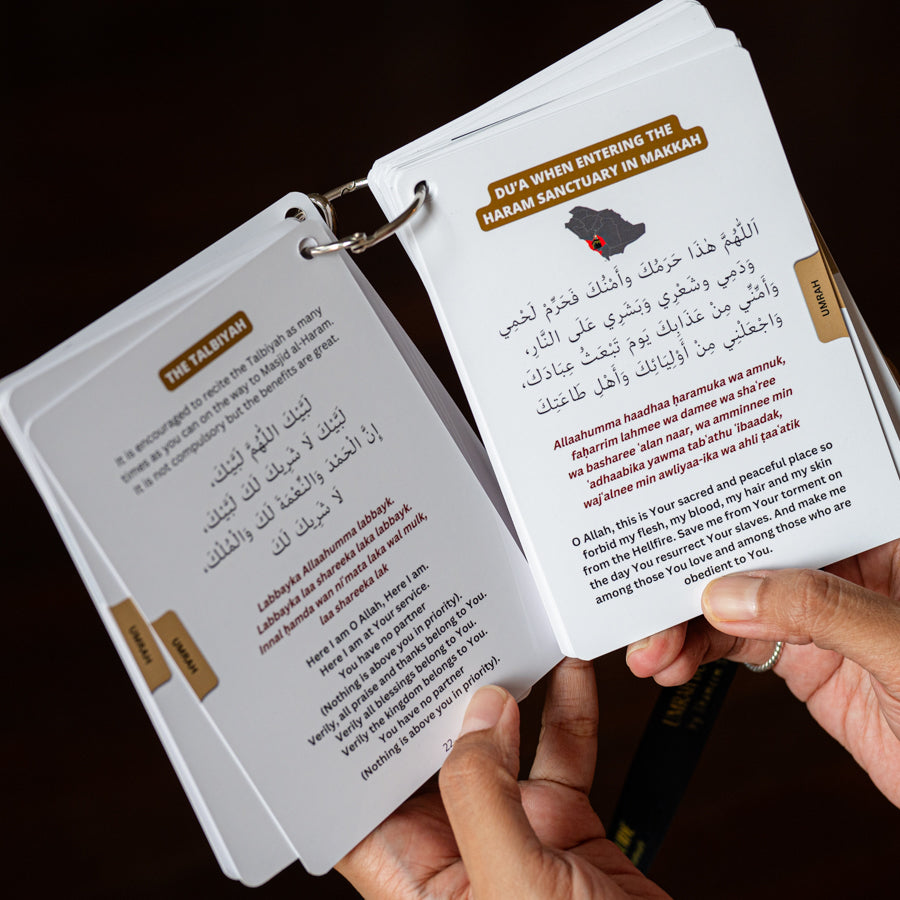 THE TALBIYAH
It is encouraged to recite the Talbiyah as many
times as you can on the way to Masjid al-Haram.
It is not compulsory but the benefits are great.
لَبَّيْكَ اللَّهُمَّ لَبَّيْكَ،
لَبَّيْكَ لَا شَرِيكَ لَكَ لَبَّيْكَ،
إِنَّ الْحَمْدَ وَالنِّعْمَةَ لَكَ وَالْمُلْكَ،
لَا شَرِيكَ لَكَ
Labbayka Allaahumma labbayk.
Labbayka laa shareeka laka labbayk.
Innal ḥamda wan ni'mata laka wal mulk,
laa shareeka lak
Here I am O Allah, Here I am.
Here I am at Your service.
You have no partner
(Nothing is above you in priority).
Verily, all praise and thanks belong to You.
Verily all blessings belong to You.
Verily the kingdom belongs to You.
You have no partner
(Nothing is above you in priority).
22
UMRAH
DU'A WHEN ENTERING THE
HARAM SANCTUARY IN MAKKAH
اَللّٰهُمَّ هٰذَا حَرَمُكَ وَأَمْنُكَ فَحَرِّمْ لَحْمِي
وَدَمِي وشَعْرِي وَبَشَرِي عَلَى النَّارِ،
وَأَمِّنِّي مِنْ عَذَابِكَ يَومَ تَبْعَثُ عِبَادَكَ،
وَاجْعَلْنِي مِنْ أَوْلِيَائِكَ وَأَهْلِ طَاعَتِكَ
Allaahumma haadhaa ḥaramuka wa amnuk,
faḥarrim lahmee wa damee wa sha'ree
wa basharee 'alan naar, wa amminnee min
'adhaabika yawma tab'athu 'ibaadak,
waj'alnee min awliyaa-ika wa ahli ṭaa'atik
O Allah, this is Your sacred and peaceful place so
forbid my flesh, my blood, my hair and my skin
from the Hellfire. Save me from Your torment on
the day You resurrect Your slaves. And make me
among those You love and among those who are
obedient to You.
UMRAH